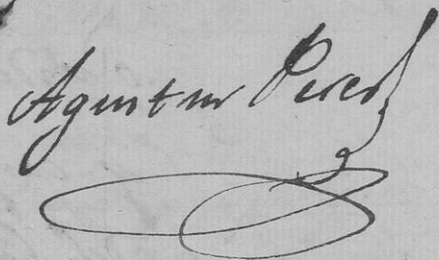 Agustin Perez